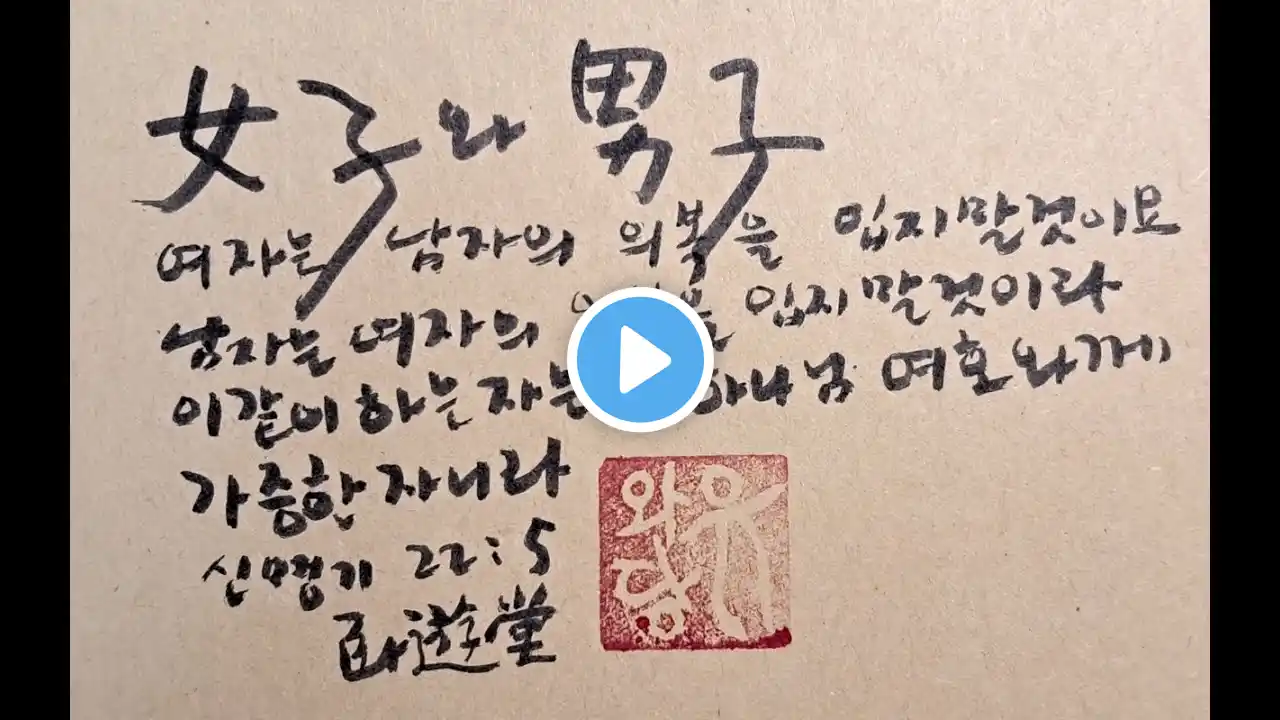 女子와 男子
여자는 남자의 의복을 입지말것이요
남자는 여자의 입지말것이라
이같이 하는자는 하나님 여호와께
가증한 자니라
신명기 22:5
臥遊堂
와유당